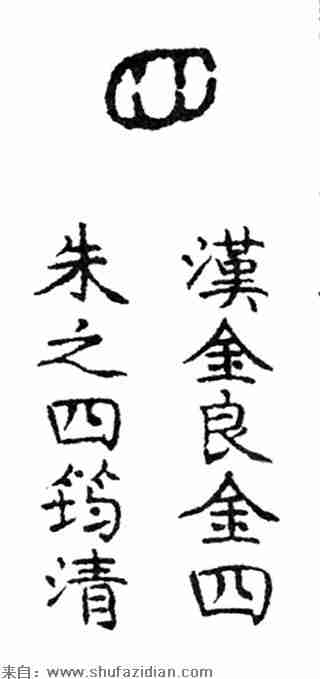 四
漢金良金四
朱之四筠清
来自：www.shufazidian.com